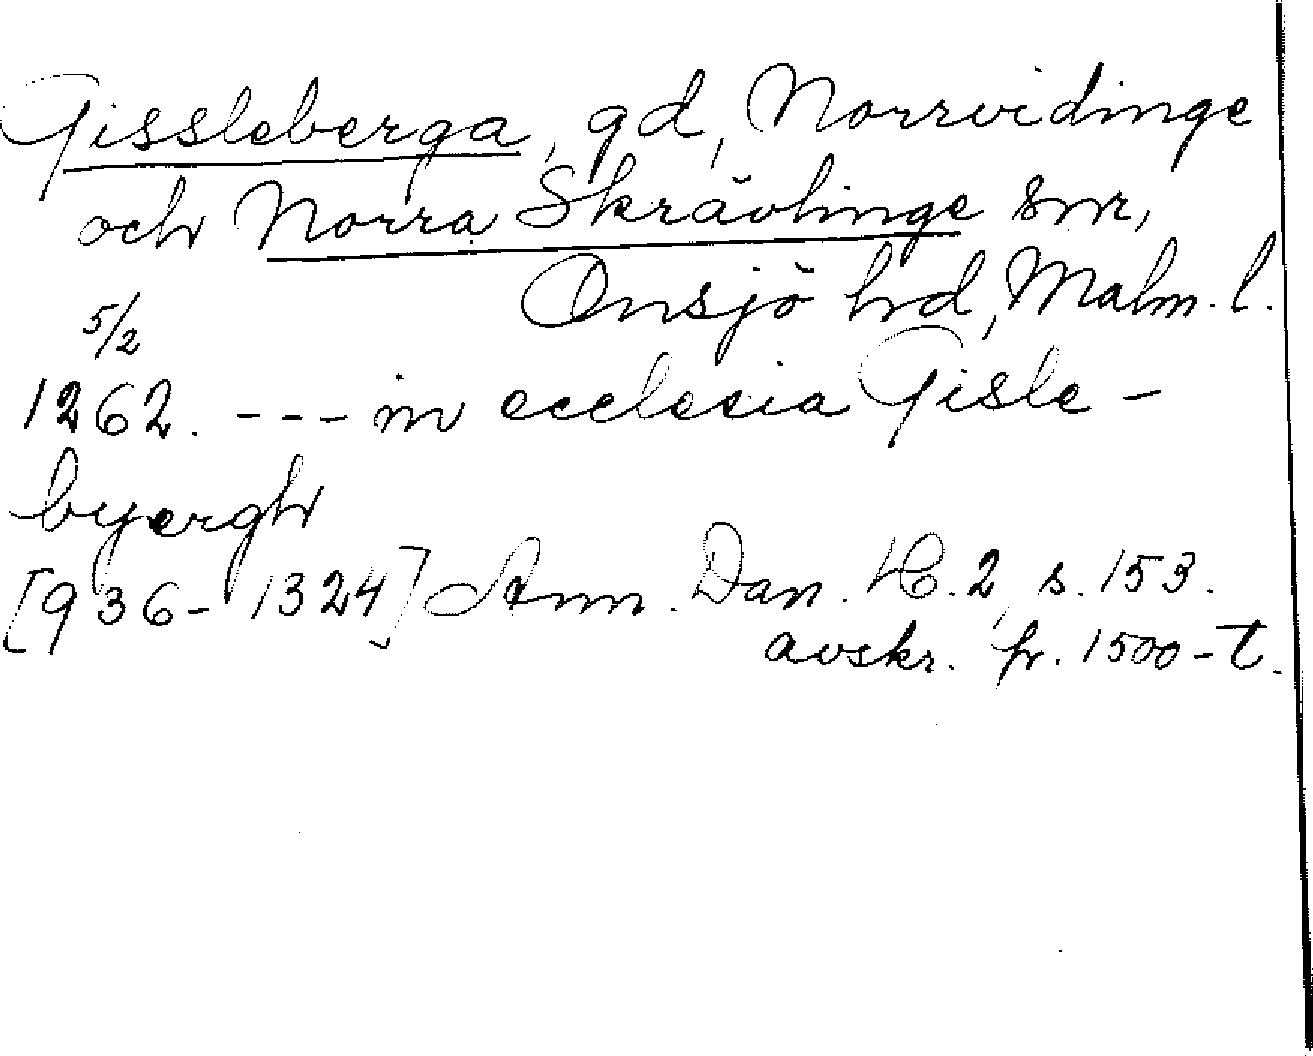 Gissleberga, gd, Norrvidinge
och Norra Skrävlinge snr,
Onsjö hd, Malm. l.
5/2
1262. --- in ecclesia Gisle-
byergh
[936-1324] Ann. Dan. H. 2, s. 153.
avskr. fr. 1500-t.